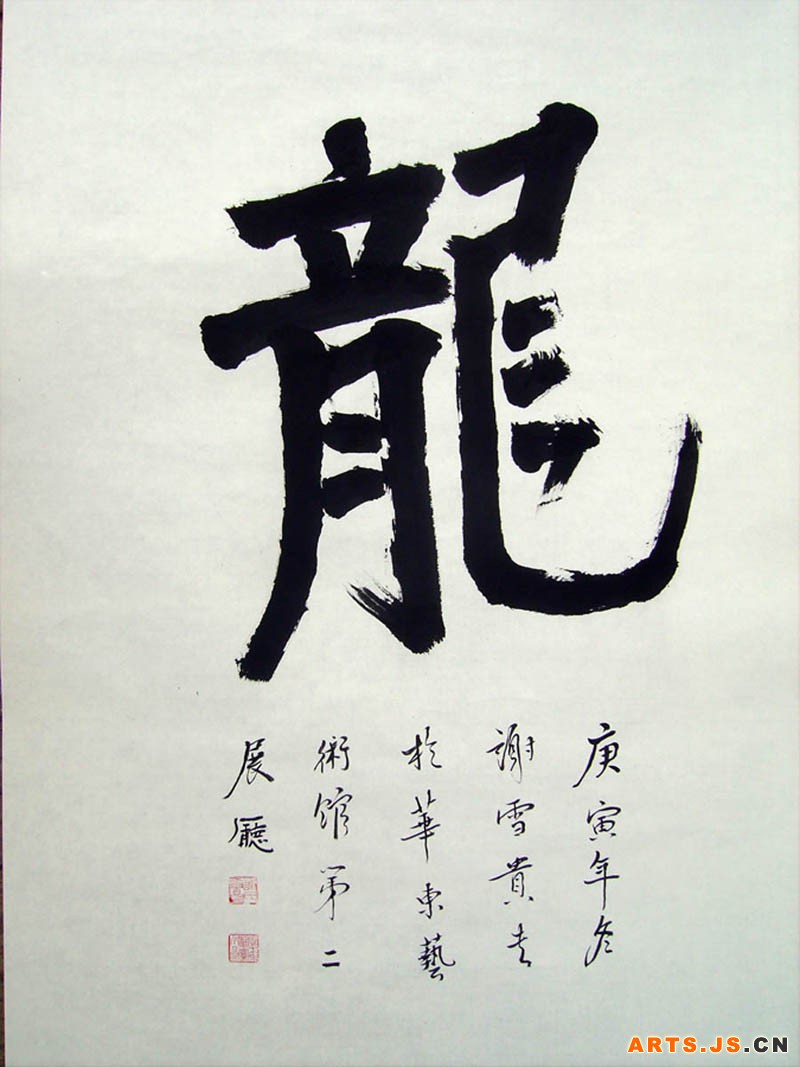 龍
庚寅年冬
謝雪貴書
於華東藝
術館第二
展廳
ARTS.JS.CN